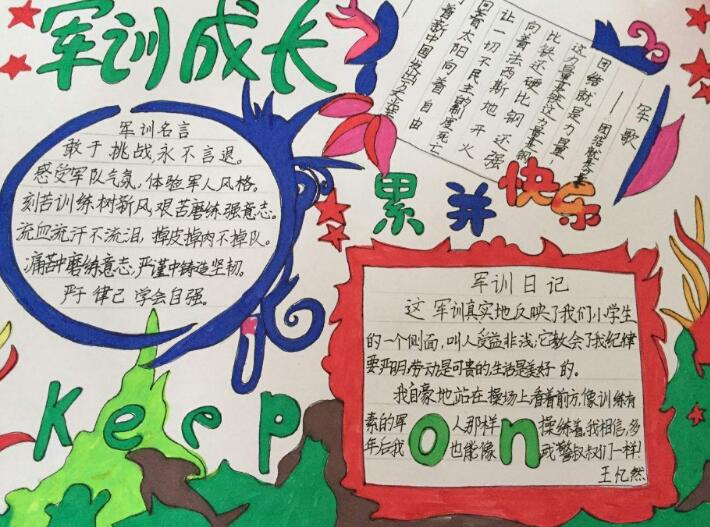 军训成长
军训名言
敢于挑战,永不言退。
感受军队气氛,体验军人风格。
刻苦训练树新风,艰苦磨练强意志。
流血流汗不流泪,掉皮掉肉不掉队。
痛苦中磨练意志,严谨中铸造坚韧。
严于律己 学会自强。
军歌
团结就是力量
团结就是力量
这力量是铁这力量是钢
比铁还硬比钢还强
向着法西斯地开火
让一切不民主的制度死亡
向着太阳向着自由
着新中国发出
累并快乐
军训日记
这军训真实地反映了我们小学生
的一个侧面,叫人受益非浅,它教会了我纪律
要严明,劳动是可贵的生活是美好的。
我自豪地站在操场上看着前方,像训练有
素的军人那样操练着,我相信,多
年后我也能像或警叔叔们一样!
王忆然
Keep on